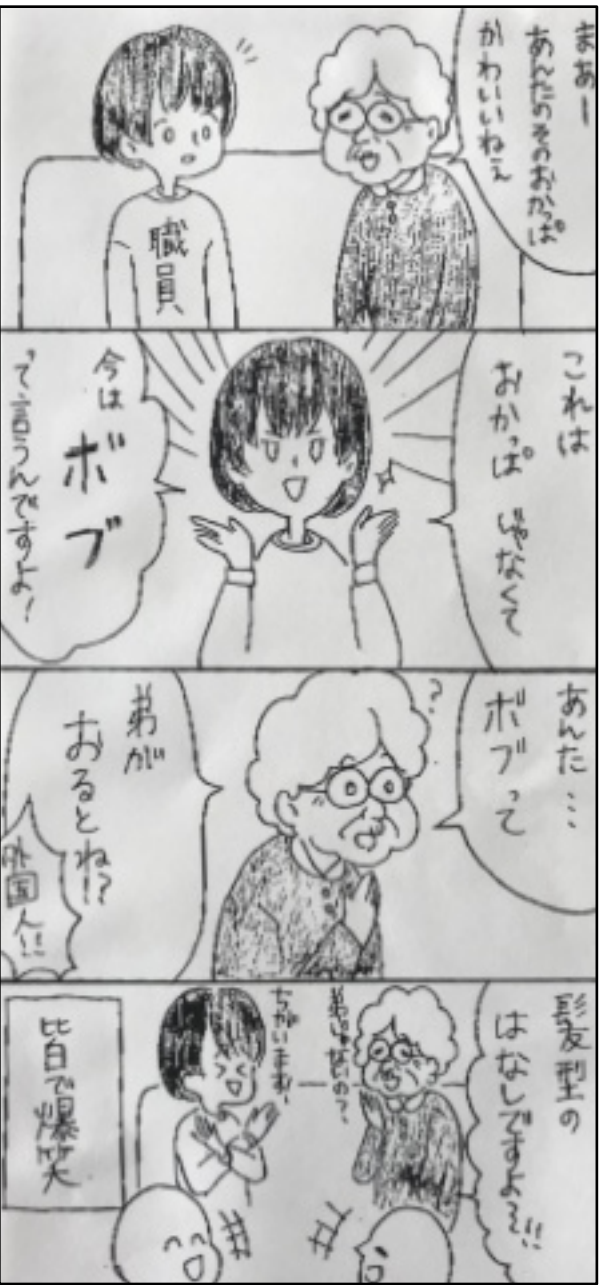 まあー
あんたのそのおかっぱ
かわいいねぇ
職員
これは
おかっぱじゃなくて
今は
ボブ
って言うんですよ！
あんた…
ボブって
？
弟が
おるとね!?
外国人!!
髪型の
はなしですよ〜!!
弟じゃないの？
ちがいますー
皆で爆笑